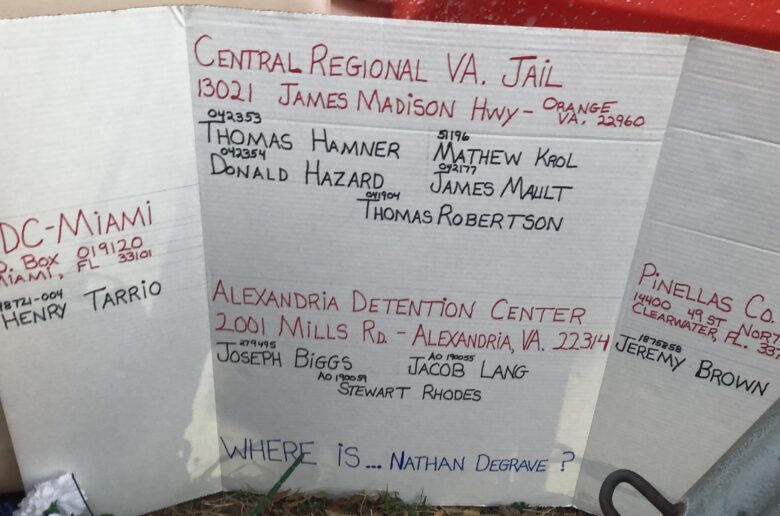 DC-MIAMI
. BOX 019120
MIAMI, FL 33101
18721-004
HENRY TARRIO
CENTRAL REGIONAL VA. JAIL
13021 JAMES MADISON HWY - ORANGE VA. 22960
042353
THOMAS HAMNER
51196
MATHEW KROL
042354
DONALD HAZARD
042177
JAMES MAULT
041904
THOMAS ROBERTSON
ALEXANDRIA DETENTION CENTER
2001 MILLS RD - ALEXANDRIA, VA. 22314
279495
JOSEPH BIGGS
AO 190055
JACOB LANG
AO 190059
STEWART RHODES
WHERE IS... NATHAN DEGRAVE ?
PINELLAS CO.
14400 49 ST NORT
CLEARWATER, FL. 337
1875858
JEREMY BROWN